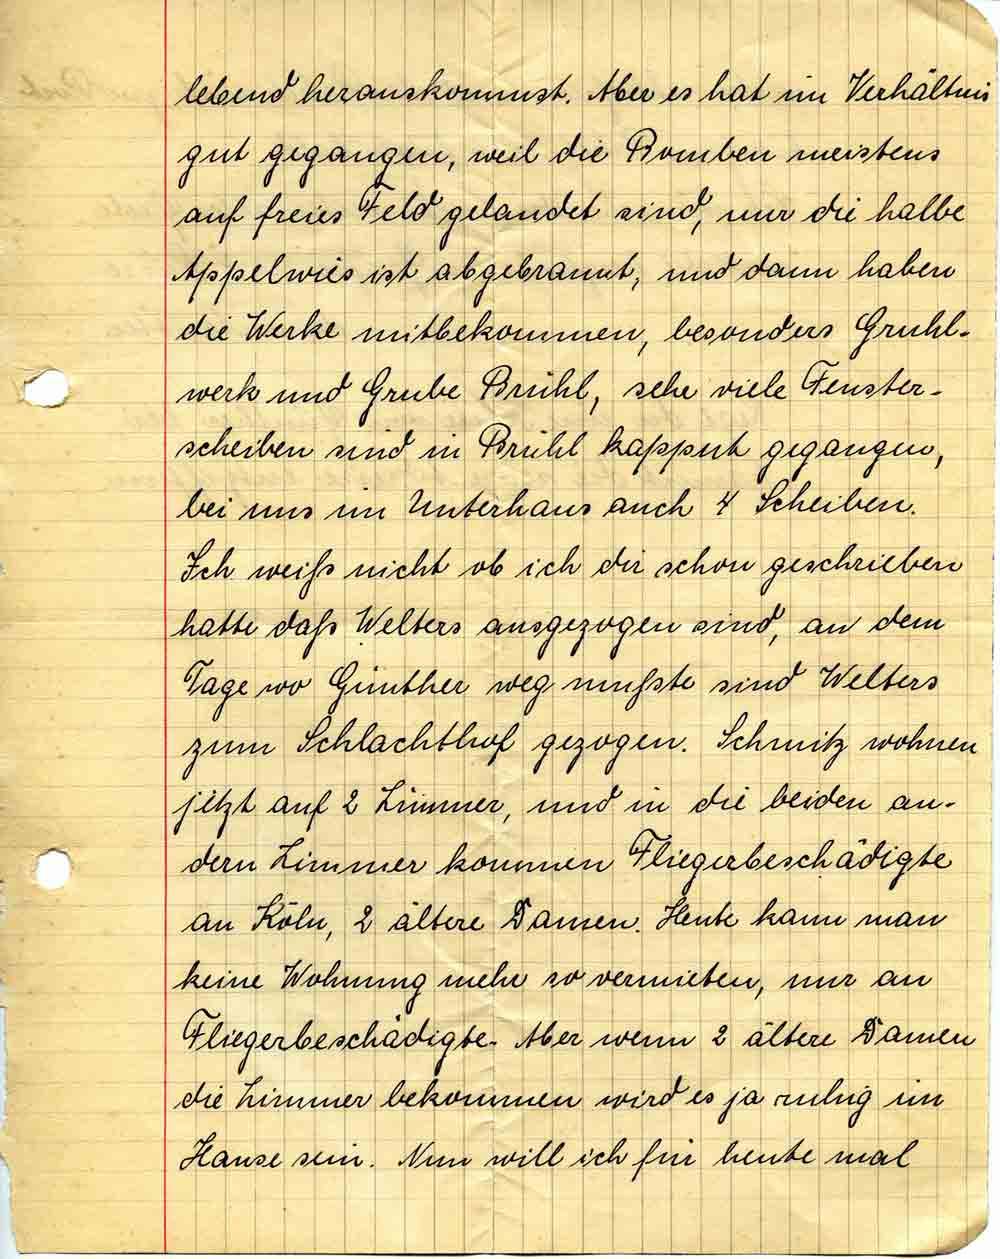 lebend herauskommst. Aber es hat im Verhältnis
gut gegangen, weil die Bomben meistens
auf freies Feld gelandet sind, nur die halbe
Appelwies ist abgebrannt, und dann haben
die Werke mitbekommen, besonders Gruhl-
werk und Grube Brühl, sehr viele Fenster-
scheiben sind in Brühl kapput gegangen,
bei uns im Unterhaus auch 4 Scheiben.
Ich weiß nicht ob ich dir schon geschrieben
hatte daß Welters ausgezogen sind, an dem
Tage wo Günther weg mußte sind Welters
zum Schlachthof gezogen. Schmitz wohnen
jetzt auf 2 Zimmer, und in die beiden an-
dern Zimmer kommen Fliegerbeschädigte
an Köln, 2 ältere Damen. Heute kann man
keine Wohnung mehr so vermieten, nur an
Fliegerbeschädigte. Aber wenn 2 ältere Damen
die Zimmer bekommen wird es ja ruhig im
Hause sein. Nun will ich für heute mal